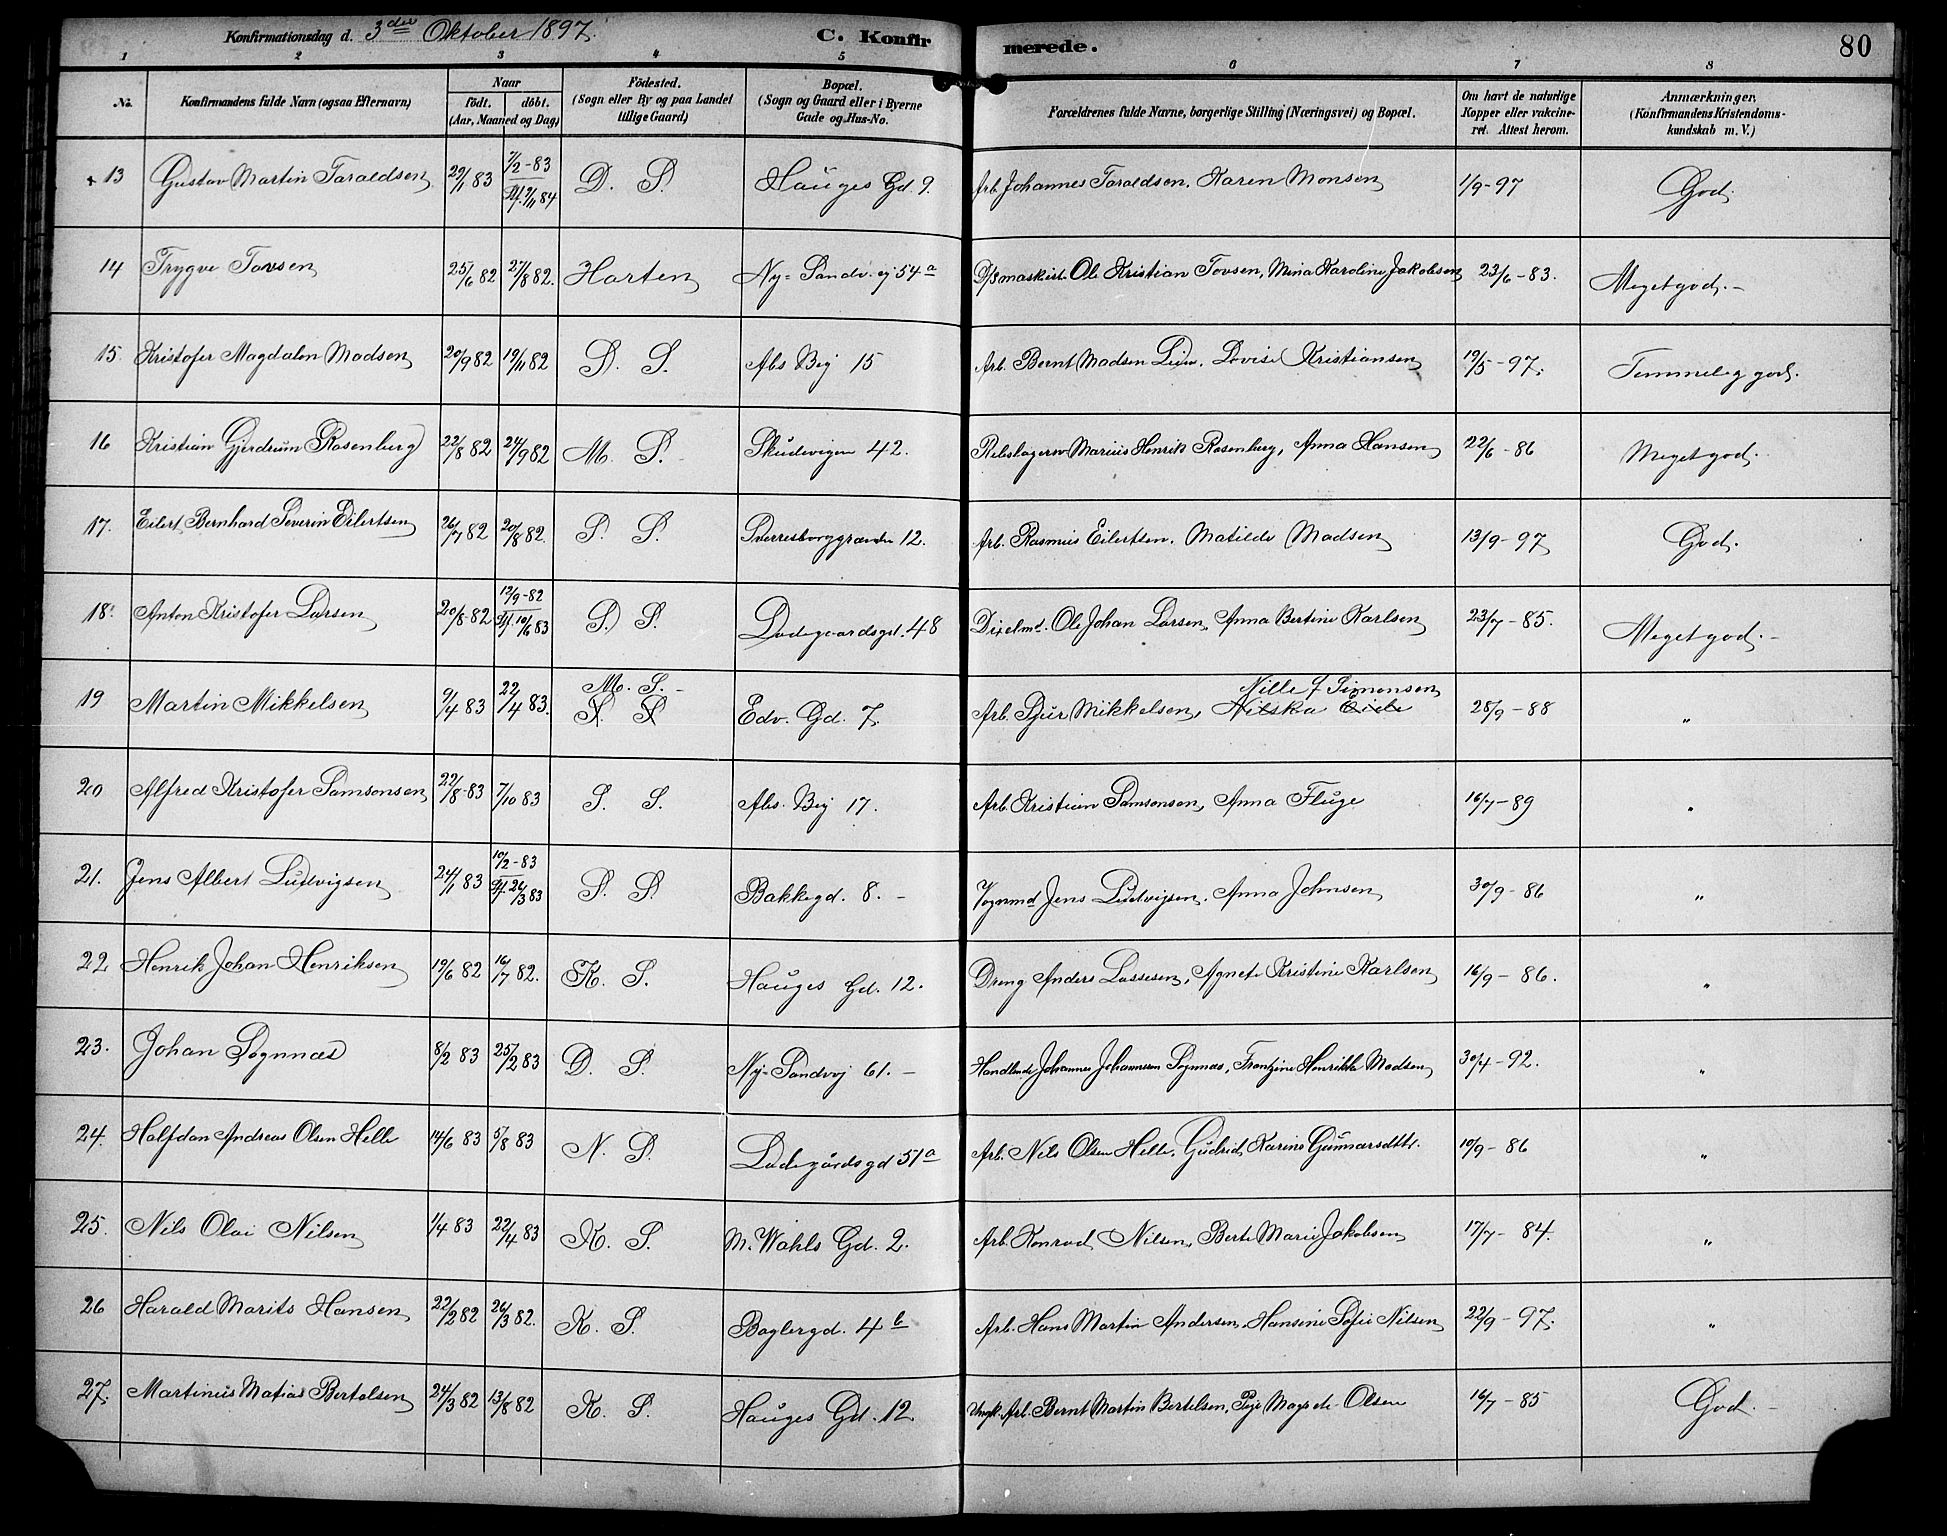 Konfirmationsdag d. 3die Oktober 1897. C. Konfirmerede. 80
1 2 3 4 5 6 7 8
No. Konfirmandens fulde Navn (ogsaa Efternavn) Naar födt. döbt. (Aar, Maaned og Dag) Födested. (Sogn eller By og paa Landet tillige Gaard) Bopæl. (Sogn og Gaard eller i Byerne Gade og Hus-No. Forældrenes fulde Navne, borgerlige Stilling (Næringsvei) og Bopæl. Om havt de naturlige Kopper eller vakcineret. Attest herom. Anmærkninger. (Konfirmandens Kristendomskundskab m. V.)
+ 13 Gustav Martin Taraldsen 29/1 83 7/2-83 9/11 84 D. S. Hauges Gd. 9. Arb. Johannes Taraldsen, Karen Monsen 1/9-97 God.
14 Trygve Tovsen 25/6 82 27/8 82. Horten Ny-Sandv. 54a Ole Kristian Tovsen, Mina Karoline Jakobsen 23/6-83. Meget god.-
15. Kristofer Magdalon Madsen 20/9 82 19/11 82 D. S. Abs Vej 15 Arb. Bernt Madsen Lien, Lovise Kristiansen 19/5-97. Temmelig god.
16 Kristian Gjerdrum Rosenberg 22/8 82 24/9 82 M. S. Skudevigen 42. Rebslagersv Marius Henrik Rosenberg, Anna Hansen 22/6-86 Meget god.
17. Eilert Bernhard Severin Eilertsen 26/7 82 20/8 82. S. S. Sverresborggrænden 12. Arb. Rasmus Eilertsen, Matilde Madsen 13/9-97 God.
18. Anton Kristofer Larsen 20/8-82 13/9-82 10/6 83 S. S. Ladegaardsgd. 48 Dixelmd. Ole Johan Larsen, Anna Bertine Karlsen 23/7-85. Meget god.-
19 Martin Mikkelsen 9/4 83 22/4 83. M. S.- S. S. Edv. Gd. 7. Arb. Sjur Mikkelsen, Nilska Eide Nille J Simonsen 28/9-88 "
20 Alfred Kristofer Samsonsen 22/8-83 7/10 83 S. S. Abs. Vej 17. Arb. Kristian Samsonsen, Anna Fluge 16/7-89 "
21. Jens Albert Ludvigsen 24/1 83 10/2-83 26/3 83 S. S. Bakkegd. 8.- Vognmd Jens Ludvigsen, Anna Johnsen 30/9-86 "
22 Henrik Johan Henriksen 19/6 82 16/7 82. K. S. Hauges Gd. 12. Dreng Anders Lassesen, Agnete Kristine Karlsen 16/9-86. "
23. Johan Sognnæs 8/2 83 25/2 83 D. S. Ny-Sandvj 61.- Handlende Johannes Johannesen Sognnæs, Frantzine Henrikke Madsen 30/4-92. "
24. Halfdan Andreas Olsen Helle 14/6 83 5/8 83 N. S. Ladegårdsgd 51a Arb. Nils Olsen Helle, Gudrid Karine Gunnarsdttr. 10/9-86 "
25. Nils Olai Nilsen 1/4 83 22/4 83 K. S. M. Wahls Gd. 2. Arb. Konrad Nilsen, Berte Marie Jakobsen 17/7-84. "
26 Harald Marits Hansen 22/2 82 26/3 82. K. S. Baglergd. 4b Arb. Hans Martin Andersen, Hansine Sofie Nilsen 22/9-97. "
27. Martinus Matias Bertelsen 24/3 82 13/8 82 K. S. Hauges Gd. 12. Arb. Bernt Martin Bertelsen, Magrete Olsen 16/7-85 God.-